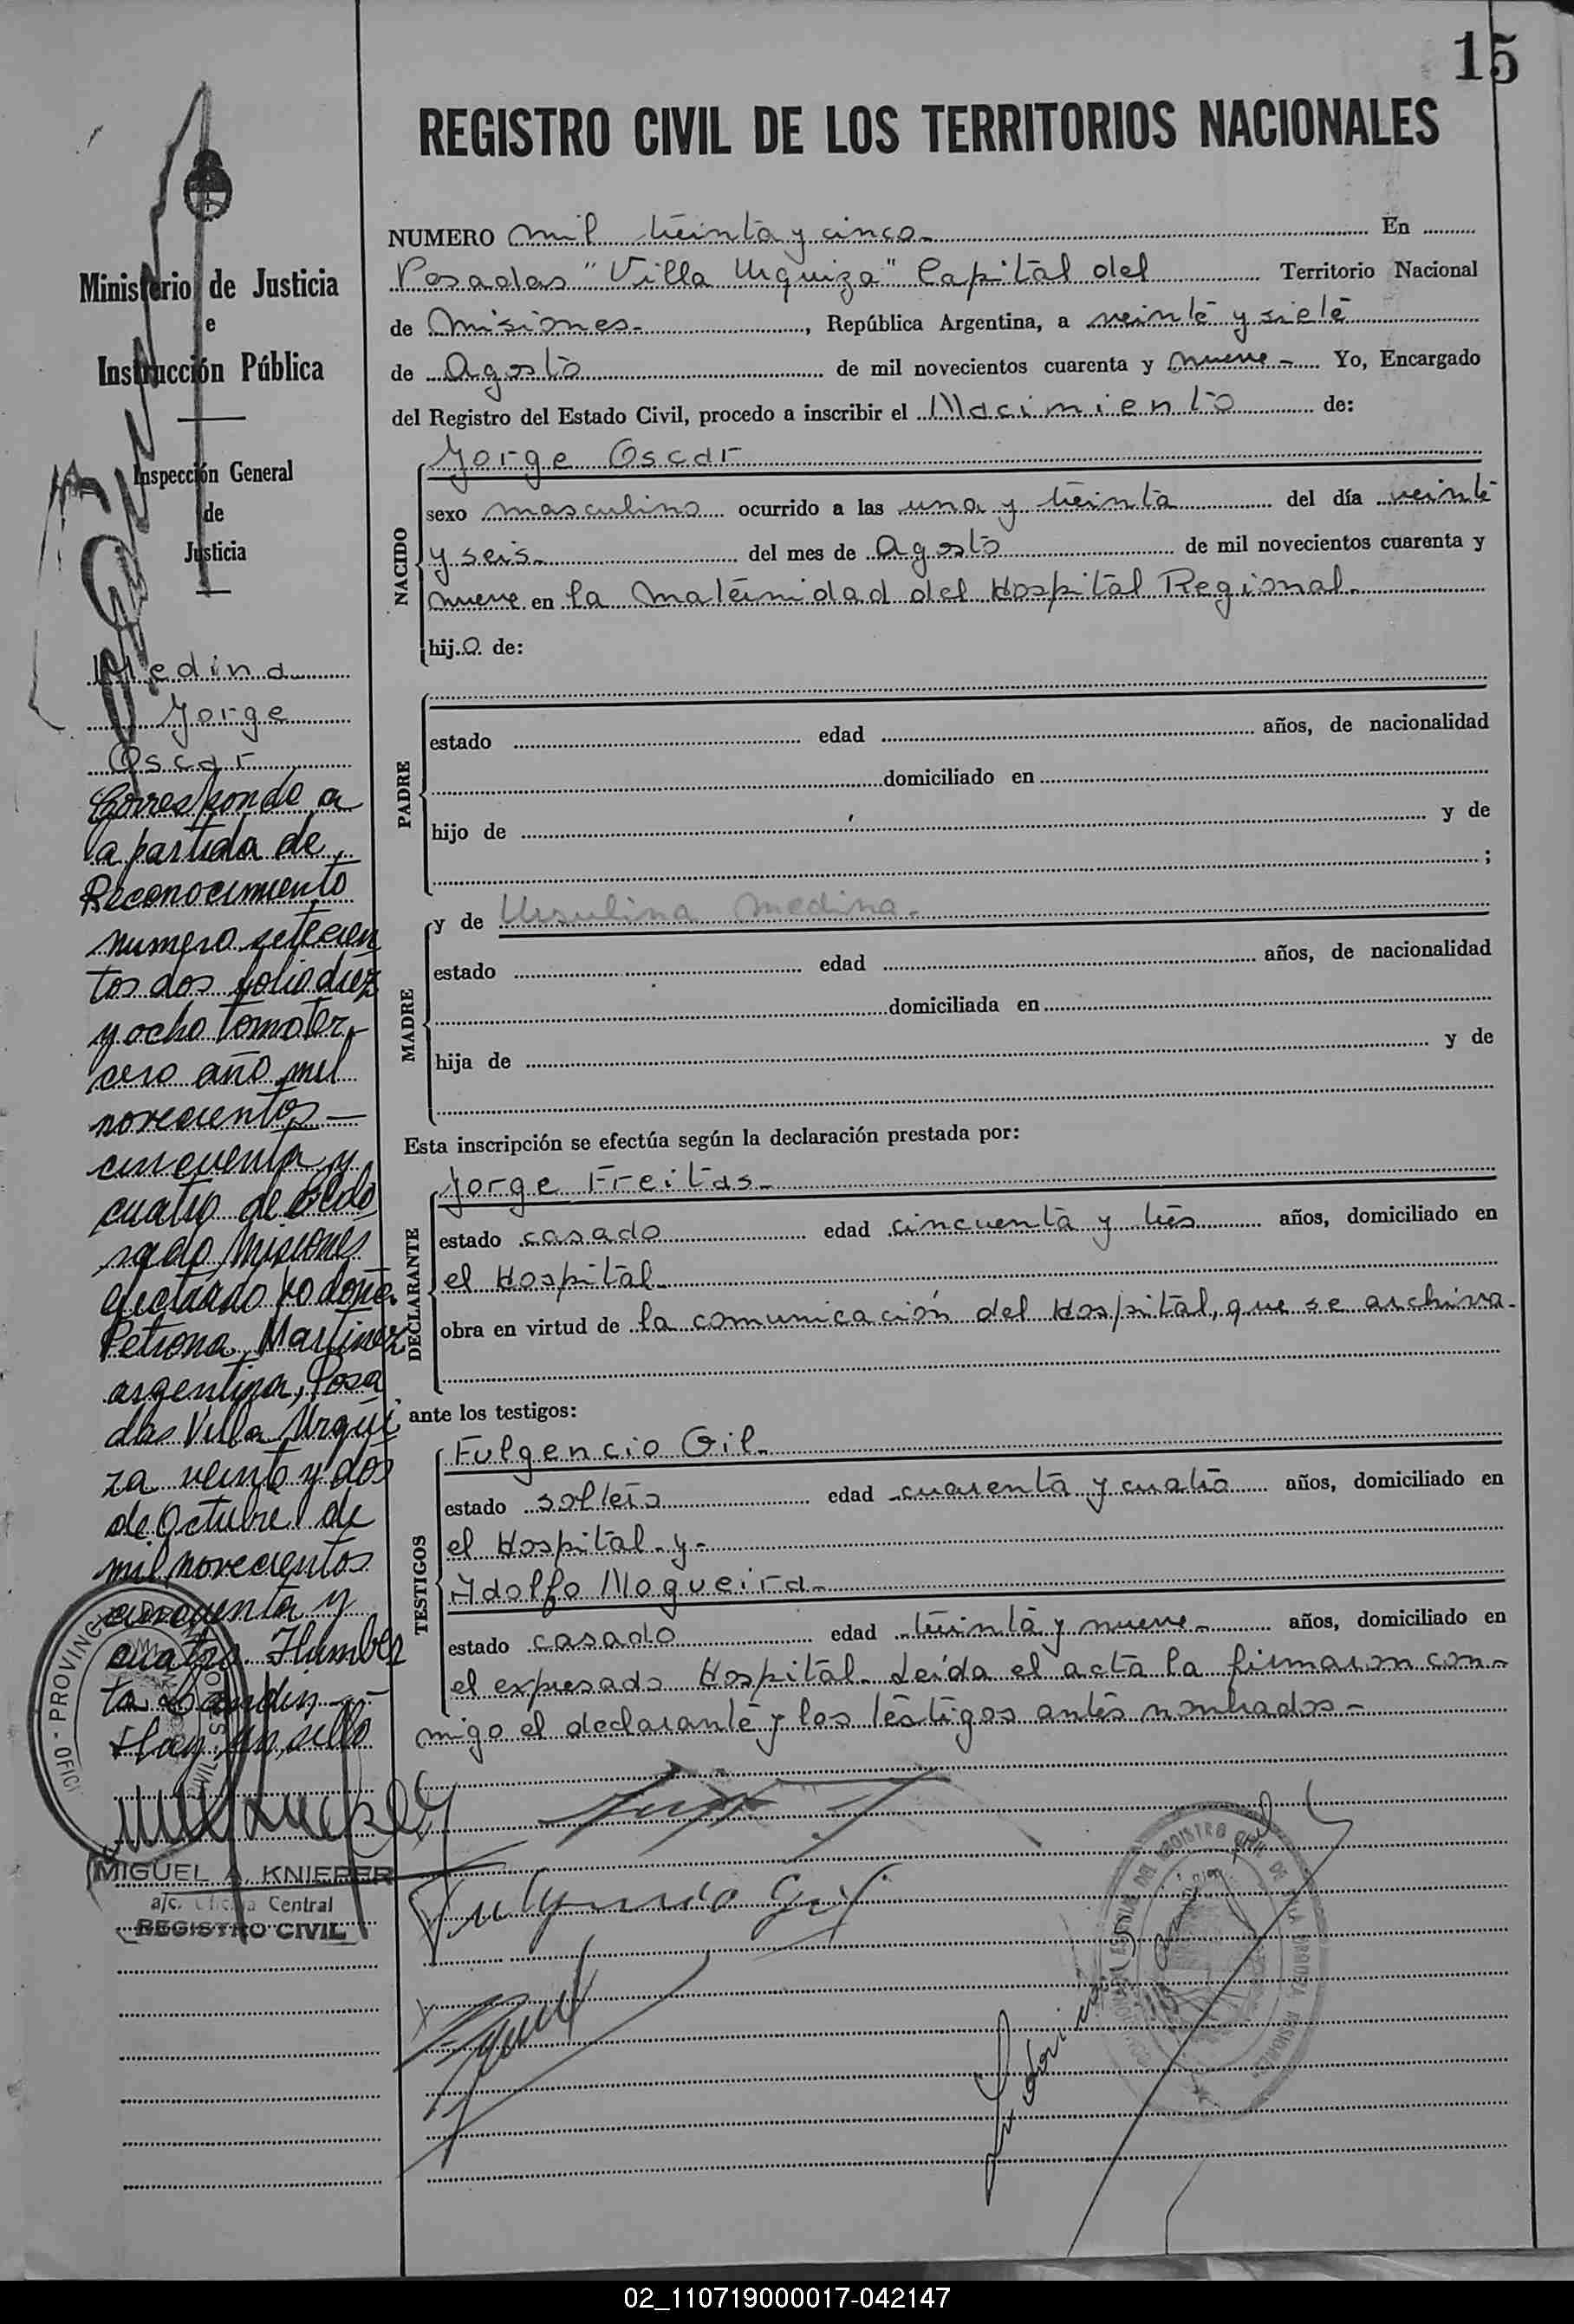 15
REGISTRO CIVIL DE LOS TERRITORIOS NACIONALES
Ministerio de Justicia
e
Instrucción Pública
Inspección General
de
Justicia
Medina
Jorge
Oscar
Corresponde a
la partida de
Reconocimiento
numero setecien
tos dos folio diez
y ocho tomo ter-
cero año mil
novecientos
cincuenta y
cuatro de
Misiones
efectuado doña
Petrona Martinez
argentina, Posa
das Villa Urqui
za veinte y dos
de Octubre de
mil novecientos
cincuenta y
cuatro.
Hay un sello
MIGUEL A. KNIEPER
a/c. Oficina Central
REGISTRO CIVIL
NUMERO mil treinta y cinco- En
Posadas "Villa Urquiza" Capital del Territorio Nacional
de Misiones-, República Argentina, a veinte y siete
de Agosto de mil novecientos cuarenta y nueve- Yo, Encargado
del Registro del Estado Civil, procedo a inscribir el Nacimiento de:
NACIDO
Jorge Oscar
sexo masculino ocurrido a las una y treinta del día veinte
y seis- del mes de Agosto de mil novecientos cuarenta y
nueve en la Maternidad del Hospital Regional-
hijo de:
PADRE
estado edad años, de nacionalidad
domiciliado en
hijo de y de
;
MADRE
y de Ursulina Medina-
estado edad años, de nacionalidad
domiciliada en
hija de y de
Esta inscripción se efectúa según la declaración prestada por:
DECLARANTE
Jorge Freitas-
estado casado edad cincuenta y tres años, domiciliado en
el Hospital-
obra en virtud de la comunicación del Hospital, que se archiva-
ante los testigos:
TESTIGOS
Fulgencio Gil-
estado soltero edad cuarenta y cuatro años, domiciliado en
el Hospital- y-
Adolfo Nogueira-
estado casado edad treinta y nueve- años, domiciliado en
el expresado Hospital- Leída el acta la firmaron con-
migo el declarante y los testigos antes nombrados-
Fulgencio Gil
02_110719000017-042147